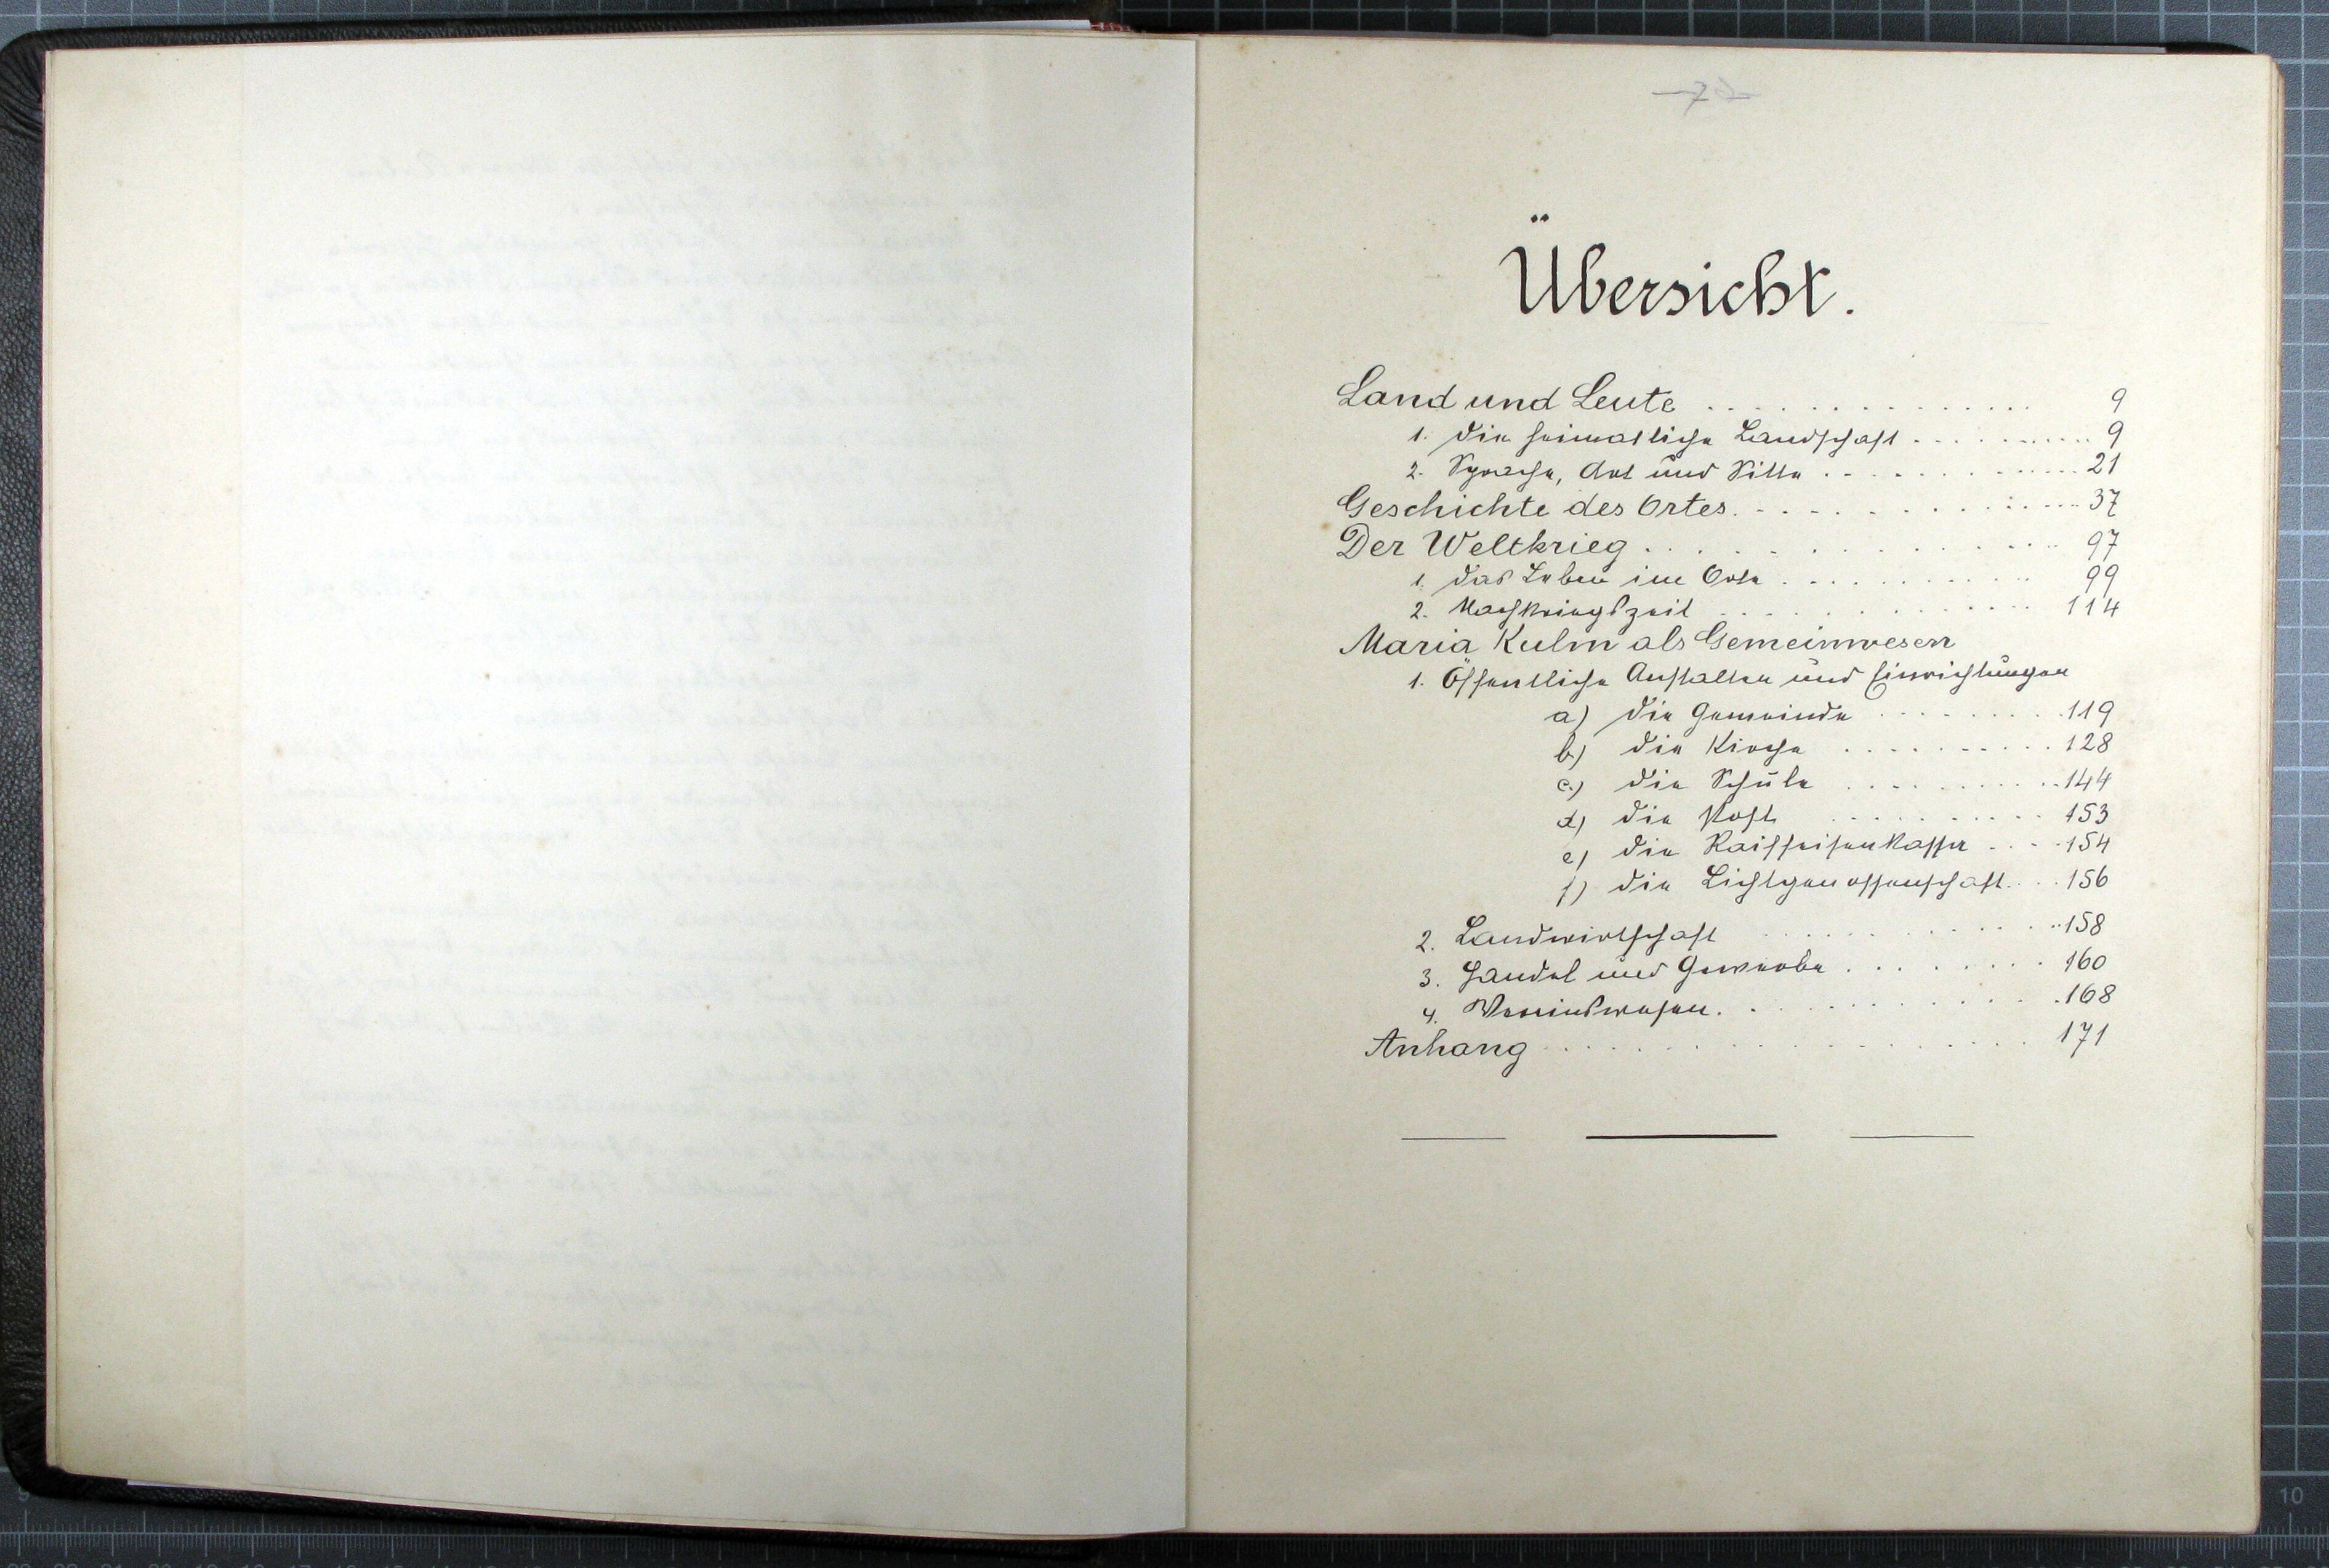 Übersicht.
Land und Leute . . . . . . . . . . . . . . . 9
1. Die heimatliche Landschaft . . . . . . . . . . 9
2. Sprache, Art und Sitte . . . . . . . . . . . 21
Geschichte des Ortes . . . . . . . . . . . . . 37
Der Weltkrieg . . . . . . . . . . . . . . . 97
1. Das Leben im Orte . . . . . . . . . . . . 99
2. Nachkriegszeit . . . . . . . . . . . . . . 114
Maria Kulm als Gemeinwesen
1. Öffentliche Anstalten und Einrichtungen
a) die Gemeinde . . . . . . . . . 119
b) die Kirche . . . . . . . . . . 128
c) die Schule . . . . . . . . . . 144
d) die Post . . . . . . . . . . 153
e) die Raiffeisenkasse . . . . 154
f) die Lichtgenossenschaft . . . 156
2. Landwirtschaft . . . . . . . . . . . . . 158
3. Handel und Gewerbe . . . . . . . . 160
4. Vereinswesen . . . . . . . . . . . . . 168
Anhang . . . . . . . . . . . . . . . . . 171
10